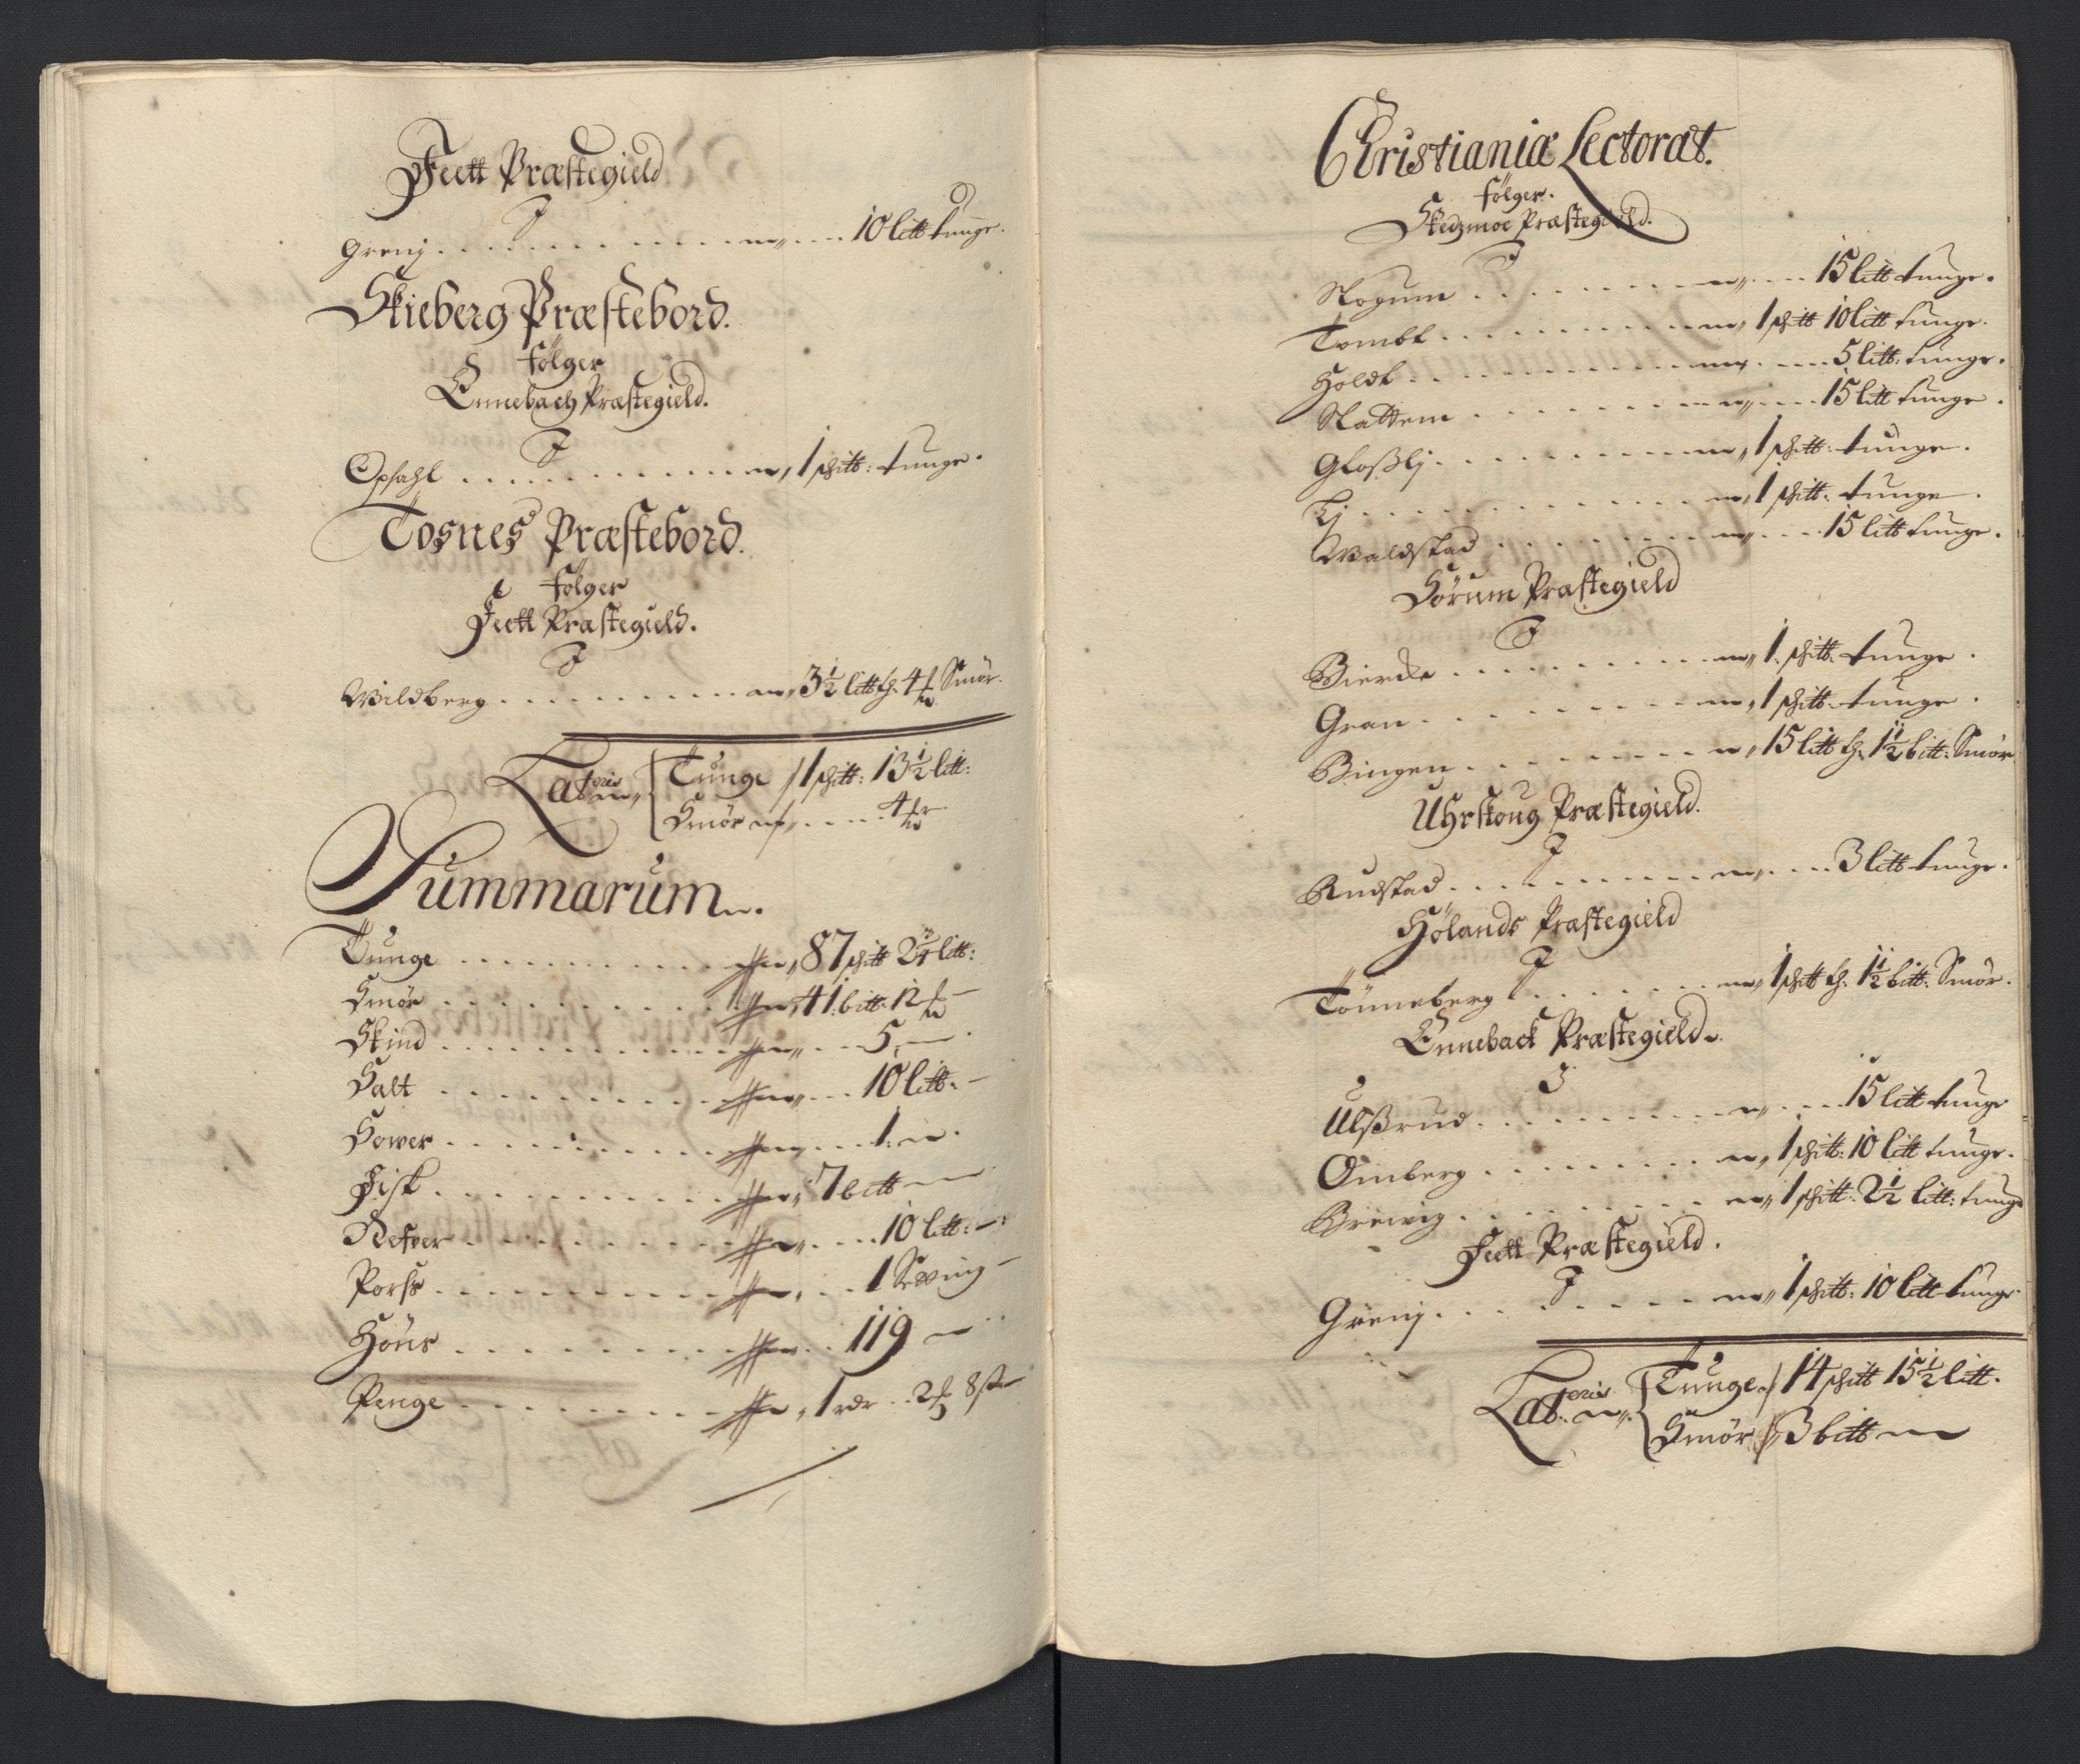 Feett Præstegield
J
Grenj . . . . . . . . . . . . . 10 litt tunge.
Skieberg Præstebord.
følger
Ennebach Præstegield.
J
Opsahl . . . . . . . . . . 1 schitt: tunge.
Tosnes Præstebord.
følger
Feett Præstegield.
J
Wildberg . . . . . . . . . . 3½ litt h: 4 Smör.
Lateris Tunge 1 schitt: 13½ litt:
Smör . . . . 4
Summarum.
Tunge . . . . . . . . . . 87 schitt 2¾ litt:
Smör . . . . . . . . . . 41 bitt: 12
Skind . . . . . . . . . . 5
Salt . . . . . . . . . . 10 litt:
Sower . . . . . . . . . . 1
Fisk . . . . . . . . . . 7 bitt
Refver . . . . . . . . . . 10 litt:
Porss . . . . . . . . . . 1
Höns . . . . . . . . . . 119
Penge . . . . . . . . . . 1 rdr . . 2 8 s
Christianiæ Lectorat.
følger.
Skedzmoe Præstegield.
J
Skogum . . . . . . . . . . 15 litt tunge.
Tombt . . . . . . . . . . 1 schitt 10 litt tunge.
Holdt . . . . . . . . . . 5 litt: tunge.
Nattem . . . . . . . . . . 15 litt tunge.
Gloßlj . . . . . . . . . . 1 schitt: tunge.
Lj . . . . . . . . . . 1 schitt: tunge.
Waldstad . . . . . . . . . . 15 litt tunge.
Sörum Præstegield
J
Biercke . . . . . . . . . . 1. schitt: tunge.
Gran . . . . . . . . . . 1 schitt: tunge.
Bingen . . . . . . . . . . 15 litt h: 1½ bitt: Smör
Uhrskoug Præstegield.
J
Rudstad . . . . . . . . . . 3 litt tunge.
Hölands Præstegield
J
Tönneberg . . . . . . . 1 schitt h: 1½ bitt: Smör.
Enneback Præstegield.
J
Ulßrud . . . . . . . . . . 15 litt tunge
Omberg . . . . . . . . . . 1 schitt: 10 litt tunge.
Brewig . . . . . . . . . . 1 schitt: 2½ litt: tunge
Feett Præstegield.
J
Grenj . . . . . . . . . . 1 schitt: 10 litt tunge
Lateris Tunge 14 schitt 15½ litt.
Smör 3 bitt